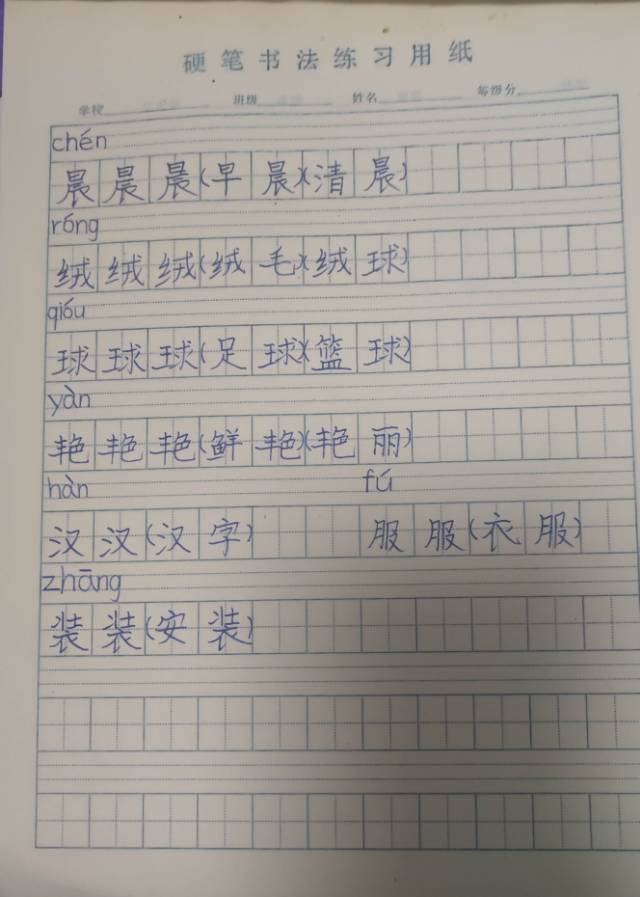 硬笔书法练习用纸
学校 班级 姓名 等级分
chén
晨晨晨(早晨)(清晨)
róng
绒绒绒(绒毛)(绒球)
qióu
球球球(足球)(篮球)
yàn
艳艳艳(鲜艳)(艳丽)
hàn fú
汉汉(汉字) 服服(衣服)
zhāng
装装(安装)